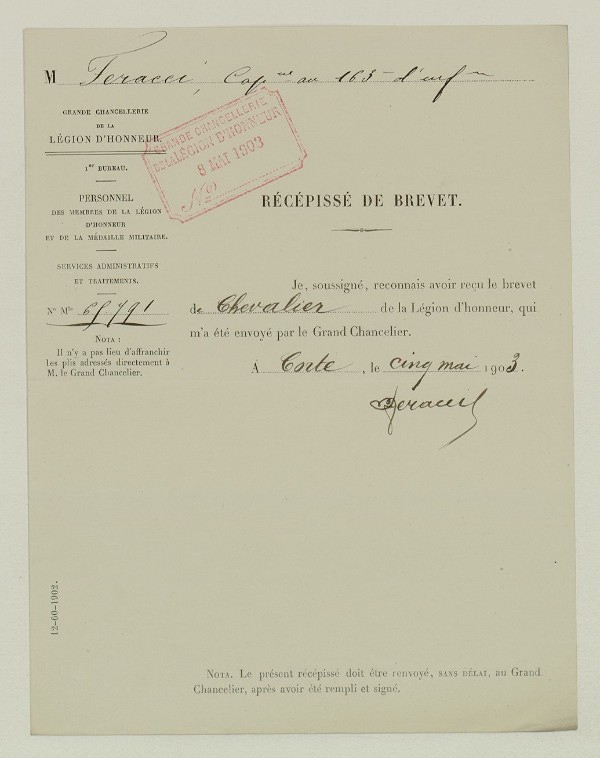 M Feracci, Capne au 163e d'infie
GRANDE CHANCELLERIE
DE LA
LÉGION D'HONNEUR.
1er BUREAU.
PERSONNEL
DES MEMBRES DE LA LÉGION
D'HONNEUR
ET DE LA MÉDAILLE MILITAIRE.
SERVICES ADMINISTRATIFS
ET TRAITEMENTS.
No Mle 65791
NOTA :
Il n'y a pas lieu d'affranchir
les plis adressés directement à
M. le Grand Chancelier.
GRANDE CHANCELLERIE
DE LA LÉGION D'HONNEUR
8 MAI 1903
No
RÉCÉPISSÉ DE BREVET.
Je, soussigné, reconnais avoir reçu le brevet
de Chevalier de la Légion d'honneur, qui
m'a été envoyé par le Grand Chancelier.
À Corte, le cinq mai 1903.
Feracci
12-60-1902.
NOTA. Le présent récépissé doit être renvoyé, SANS DÉLAI, au Grand
Chancelier, après avoir été rempli et signé.